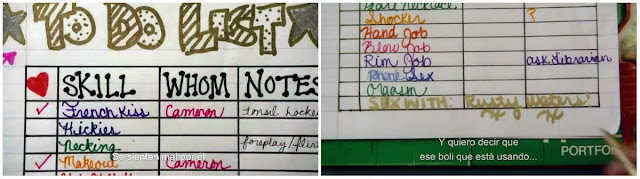 TO DO LIST
SKILL WHOM NOTES
French Kiss Cameron tonsil hockey
Hickies
Necking foreplay/flirt
Makeout Cameron
Se sienten mal por él
Pearl Necklace
Shocker ?
Hand Job
Blow Job
Rim Job ask librarian
Phone Sex
Orgasm
SEX WITH: Rusty Waters
Y quiero decir que
ese boli que está usando...
PORTFO